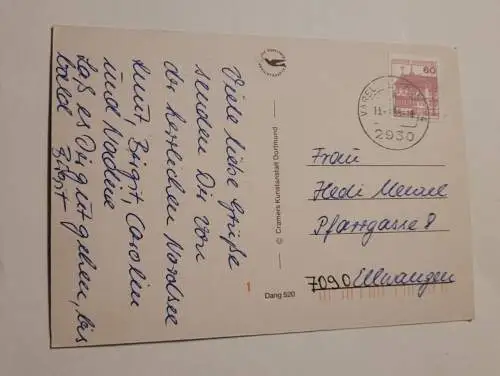 Viele liebe Grüße
senden Dir von
der herrlichen Nordsee
Knut, Birgit, Carolin
und Nadine
Laß es Dir gut gehen, bis
bald Birgit
© Cramers Kunstanstalt Dortmund
1
Dang 520
60
VAREL
2930
Frau
Hedi
Pfarrgasse 8
7090 Ellwangen